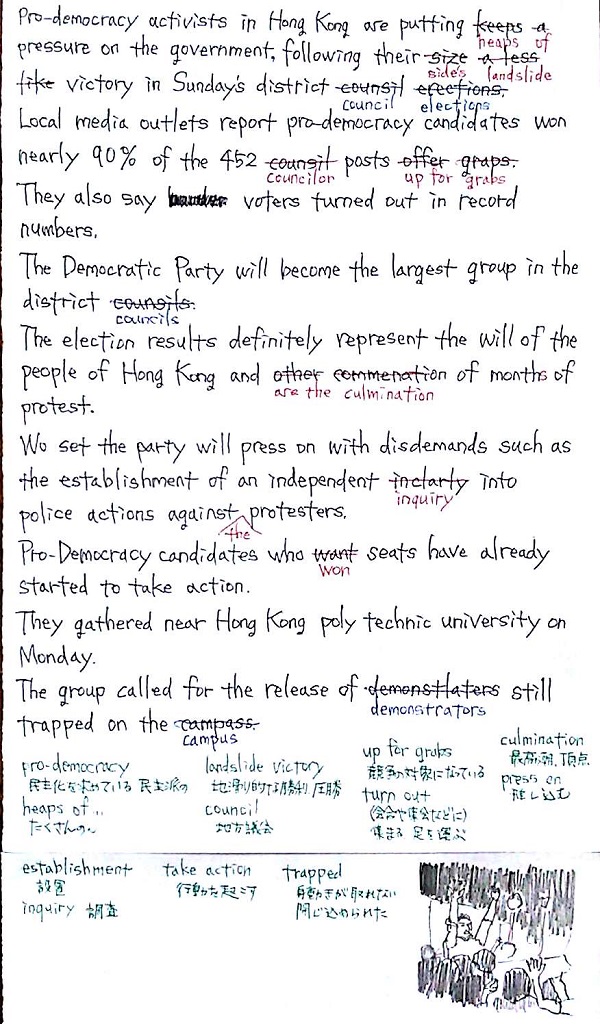 Pro-democracy activists in Hong Kong are putting keeps a
heaps of
pressure on the government, following their size a less
side's landslide
like victory in Sunday's district counsil erections.
council elections
Local media outlets report pro-democracy candidates won
nearly 90% of the 452 counsil posts offer graps.
councilor up for grabs
They also say voters turned out in record
numbers.
The Democratic Party will become the largest group in the
district counsils.
councils
The election results definitely represent the will of the
people of Hong Kong and other commenation of months of
are the culmination
protest.
Wo set the party will press on with disdemands such as
the establishment of an independent inclarly into
inquiry
police actions against protesters.
the
Pro-Democracy candidates who want seats have already
won
started to take action.
They gathered near Hong Kong poly technic university on
Monday.
The group called for the release of demonstlaters still
demonstrators
trapped on the campass.
campus
pro-democracy
民主化を求めている 民主派の
heaps of..
たくさんの〜
landslide victory
地滑り的な勝利 圧勝
council
地方議会
up for grabs
競争の対象になっている
turn out
(会合や集会などに)
集まる 足を運ぶ
culmination
最高潮, 頂点
press on
推し込む
establishment
設置
inquiry 調査
take action
行動を起こす
trapped
身動きが取れない
閉じ込められた